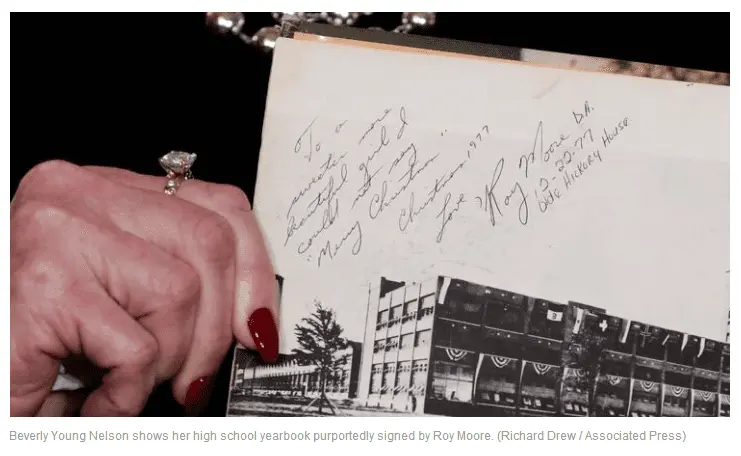 To a
sweeter more
beautiful girl I
could not say
"Merry Christmas"
Christmas 1977
Love,
Roy Moore D.A.
12-22-77
Olde Hickory House
Beverly Young Nelson shows her high school yearbook purportedly signed by Roy Moore. (Richard Drew / Associated Press)